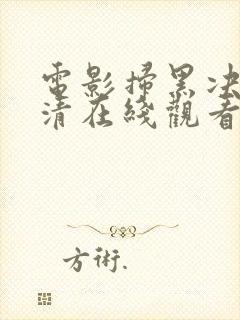 電影掃黑决
清在綫觀看
方術.